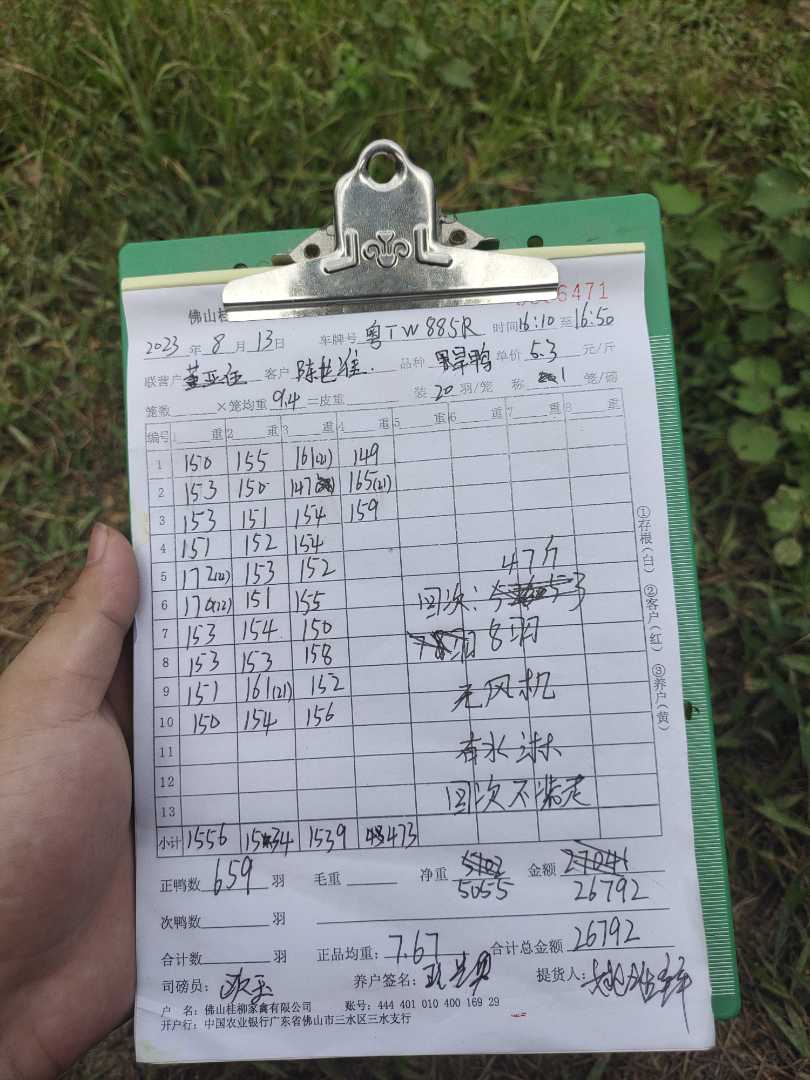 佛山桂
6471
2023 年 8 月 13 日 车牌号 粤TW885R 时间 16:10 至 16:50
联营户 董亚佳 客户 陈 准 品种 鸭 单价 5.3 元/斤
笼数 ×笼均重 9.4 =皮重 装 20 羽/笼 称 1 笼/磅
编号 1 重 2 重 3 重 4 重 5 重 6 重 7 重 8 重
1 150 155 161(21) 149
2 153 150 147 165(21)
3 153 151 154 159
4 151 152 154
5 172(22) 153 152
6 170(22) 151 155
7 153 154 150
8 153 153 158
9 151 161(21) 152
10 150 154 156
11
12
13
47斤
回次:
8羽
无风机
有水淋
回次不装走
小计 1556 1534 1539 473
正鸭数 659 羽 毛重 净重 5055 金额 26792
次鸭数 羽
合计数 羽 正品均重: 7.67 合计总金额 26792
司磅员: 养户签名: 提货人:
户 名: 佛山桂柳家禽有限公司 账号: 444 401 010 400 169 29
开户行: 中国农业银行广东省佛山市三水区三水支行
①存根(白) ②客户(红) ③养户(黄)